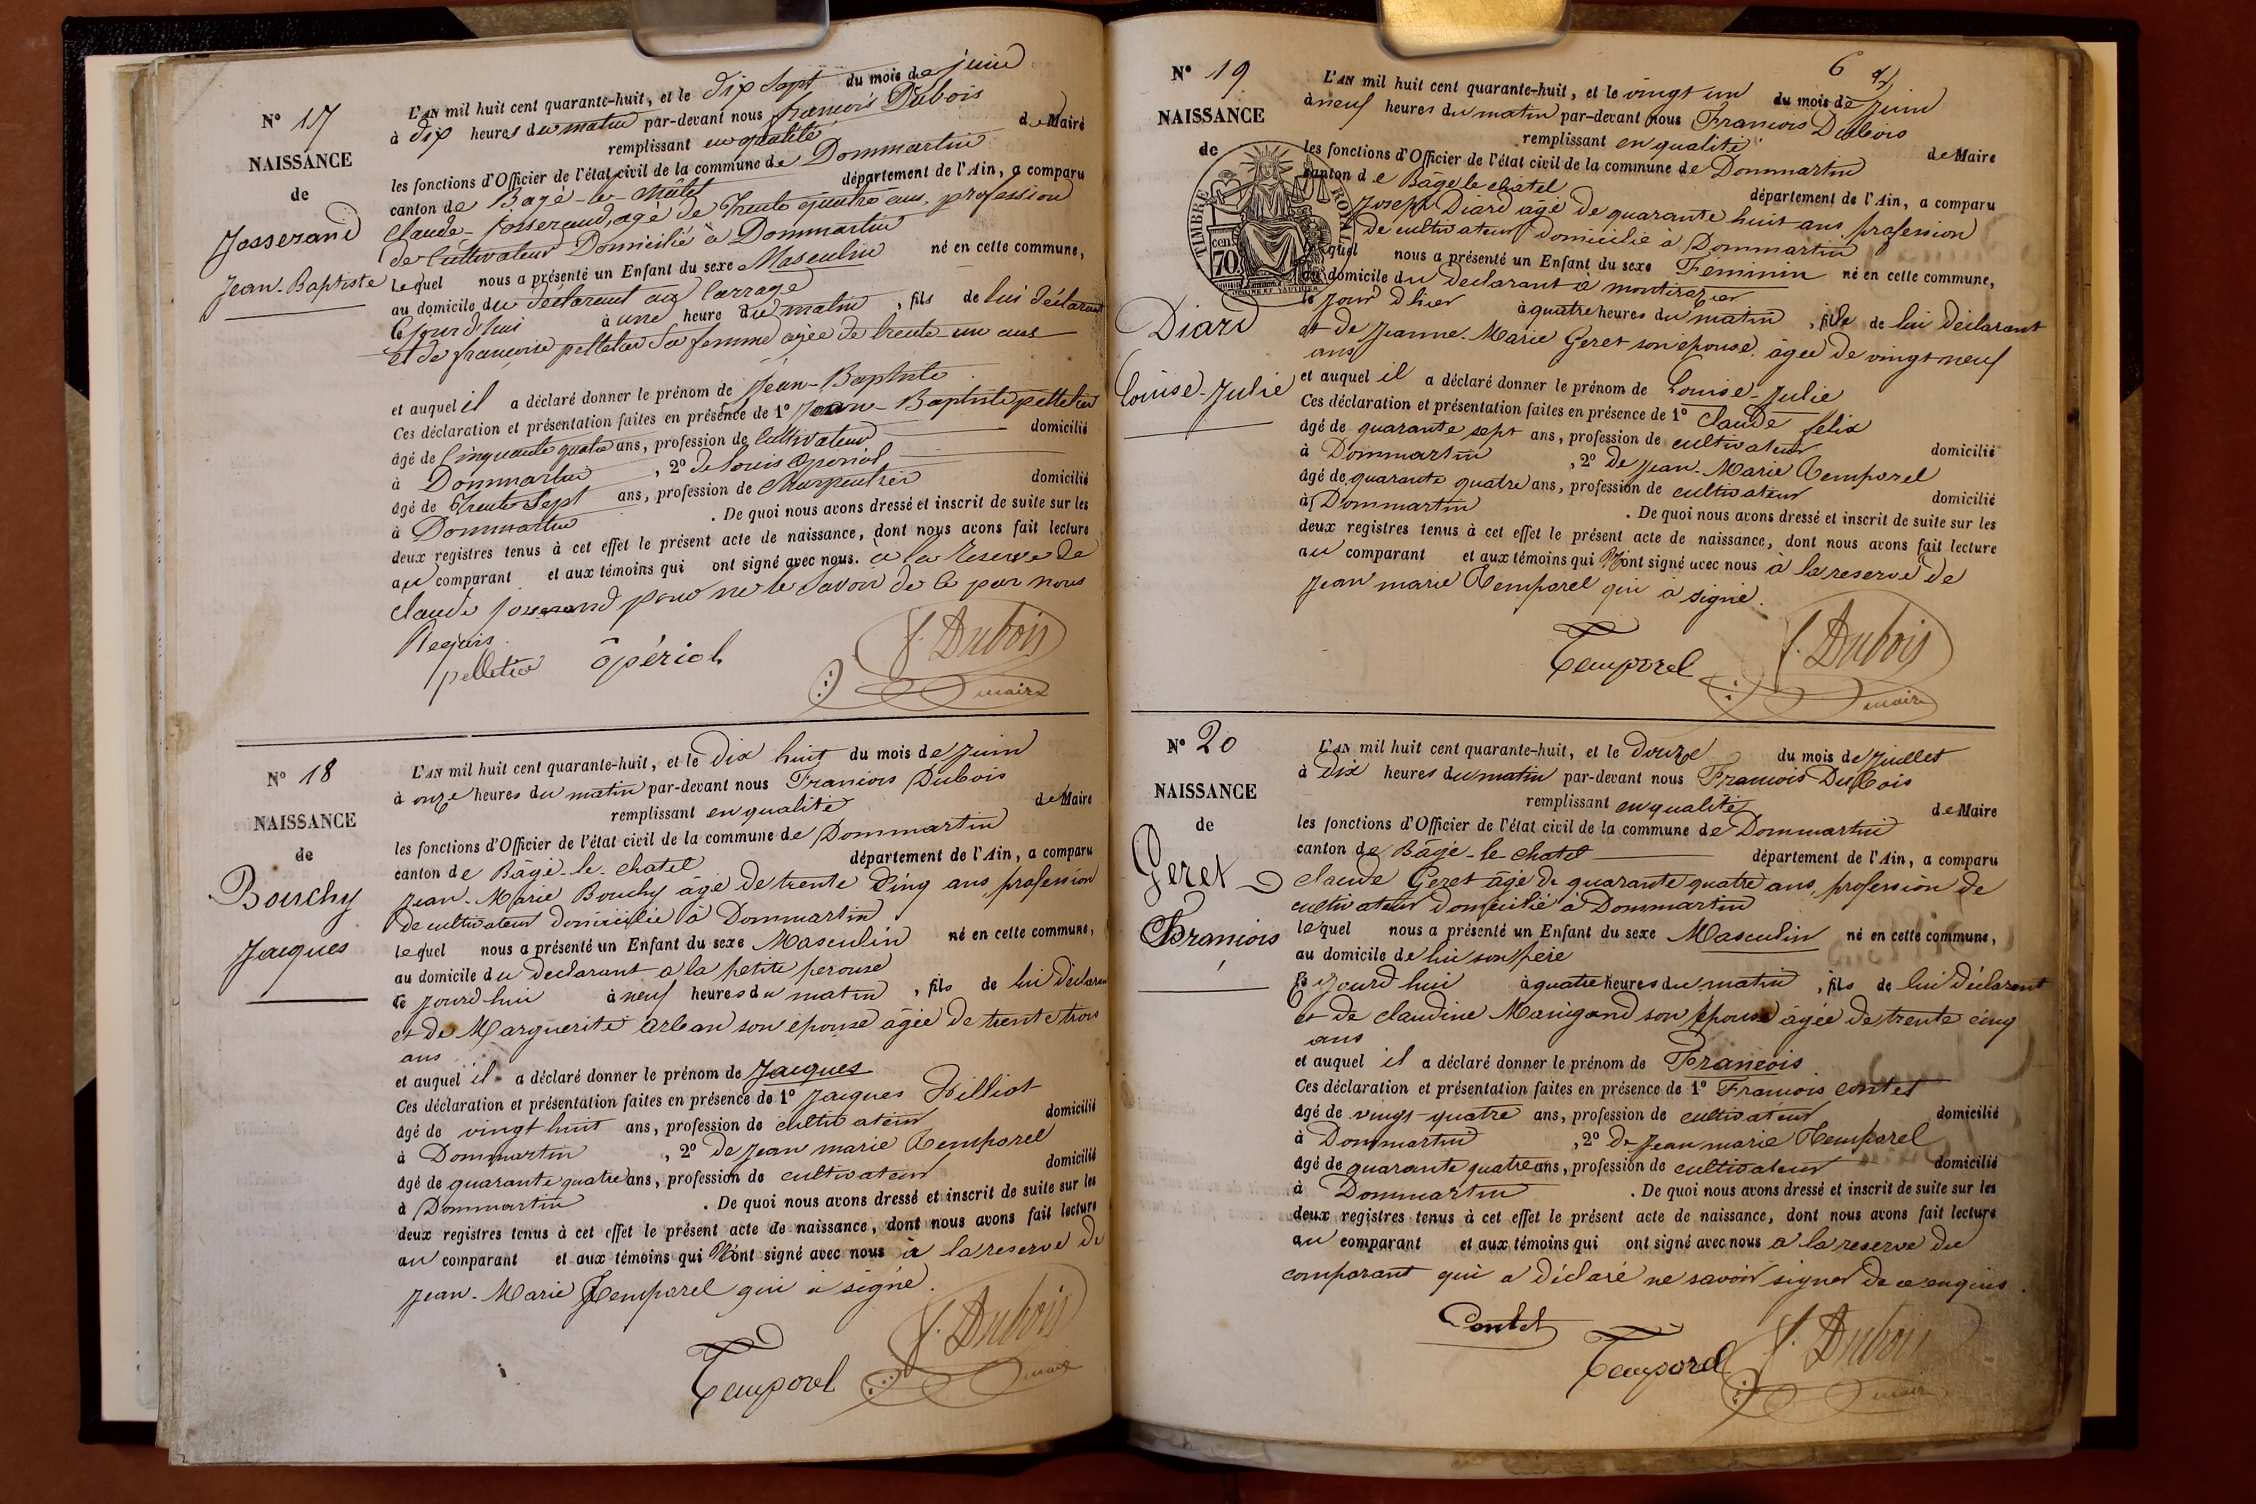 N° 17
NAISSANCE
de
Josserand
Jean-Baptiste
L'AN mil huit cent quarante-huit, et le dix sept du mois de juin
à dix heures du matin par-devant nous francois Dubois
remplissant en qualité de Maire
les fonctions d'Officier de l'état civil de la commune de Dommartin
canton de Bagé-le-châtel département de l'Ain, a comparu
Claude-Josserand, agé de Trente quatre ans, profession
de Cultivateur Domicilié à Dommartin
lequel nous a présenté un Enfant du sexe Masculin né en cette commune,
au domicile du déclarant aux
Cejourd'hui à une heure du matin, fils de lui déclarant
et de françoise pelletier Sa femme agée de trente-un ans
et auquel il a déclaré donner le prénom de Jean-Baptiste
Ces déclaration et présentation faites en présence de 1° Jean-Baptiste pelletier
âgé de Cinquante quatre ans, profession de Cultivateur domicilié
à Dommartin, 2° de Louis opériol
âgé de Trente Sept ans, profession de Charpentier domicilié
à Dommartin. De quoi nous avons dressé et inscrit de suite sur les
deux registres tenus à cet effet le présent acte de naissance, dont nous avons fait lecture
au comparant et aux témoins qui ont signé avec nous. à la Reserve de
Claude josserand pour ne le Savoir de ce par nous
Requis.
pelletier opériol f. Dubois
maire
N° 18
NAISSANCE
de
Bouchy
Jacques
L'AN mil huit cent quarante-huit, et le dix huit du mois de juin
à onze heures du matin par-devant nous Francois Dubois
remplissant en qualité de Maire
les fonctions d'Officier de l'état civil de la commune de Dommartin
canton de Bâgé-le-chatel département de l'Ain, a comparu
Jean-Marie Bouchy âgé de trente cinq ans, profession
de cultivateur domicilié à Dommartin
lequel nous a présenté un Enfant du sexe Masculin né en cette commune,
au domicile du declarant a la petite perouse
ce jourd'hui à neuf heures du matin, fils de lui déclarant
et de Marguerite Arban son épouse âgée de trente trois
ans
et auquel il a déclaré donner le prénom de Jacques
Ces déclaration et présentation faites en présence de 1° Jacques
âgé de vingt huit ans, profession de cultivateur domicilié
à Dommartin, 2° de Jean marie Temporel
âgé de quarante quatre ans, profession de cultivateur domicilié
à Dommartin. De quoi nous avons dressé et inscrit de suite sur les
deux registres tenus à cet effet le présent acte de naissance, dont nous avons fait lecture
au comparant et aux témoins qui n'ont signé avec nous à la reserve de
Jean-Marie Temporel qui a signé.
Temporel f. Dubois
maire
6
N° 19
NAISSANCE
de
TIMBRE ROYAL
cen.
70.
Diard
Louise-Julie
L'AN mil huit cent quarante-huit, et le vingt un du mois de juin
à neuf heures du matin par-devant nous Francois Dubois
remplissant en qualité de Maire
les fonctions d'Officier de l'état civil de la commune de Dommartin
canton de Bâgé le chatel département de l'Ain, a comparu
Joseph Diard âgé de quarante huit ans, profession
de cultivateur domicilié à Dommartin
lequel nous a présenté un Enfant du sexe Feminin né en cette commune,
au domicile du declarant à
le jour d'hier à quatre heures du matin, fille de lui déclarant
et de Jeanne-Marie Geret son épouse âgée de vingt neuf
ans
et auquel il a déclaré donner le prénom de Louise-Julie
Ces déclaration et présentation faites en présence de 1° Claude felix
âgé de quarante sept ans, profession de cultivateur domicilié
à Dommartin, 2° de Jean-Marie Temporel
âgé de quarante quatre ans, profession de cultivateur domicilié
à Dommartin. De quoi nous avons dressé et inscrit de suite sur les
deux registres tenus à cet effet le présent acte de naissance, dont nous avons fait lecture
au comparant et aux témoins qui n'ont signé avec nous à la reserve de
Jean marie Temporel qui a signé.
Temporel f. Dubois
maire
N° 20
NAISSANCE
de
Geret
Francois
L'AN mil huit cent quarante-huit, et le douze du mois de Juillet
à dix heures du matin par-devant nous Francois Dubois
remplissant en qualité de Maire
les fonctions d'Officier de l'état civil de la commune de Dommartin
canton de Bâgé-le-chatel département de l'Ain, a comparu
claude Geret âgé de quarante quatre ans, profession de
cultivateur domicilié à Dommartin
lequel nous a présenté un Enfant du sexe Masculin né en cette commune,
au domicile de lui son père
ce jourd'hui à quatre heures du matin, fils de lui déclarant
et de claudine Manigand son épouse âgée de trente cinq
ans
et auquel il a déclaré donner le prénom de Francois
Ces déclaration et présentation faites en présence de 1° Francois contet
âgé de vingt-quatre ans, profession de cultivateur domicilié
à Dommartin, 2° de Jean marie Temporel
âgé de quarante quatre ans, profession de cultivateur domicilié
à Dommartin. De quoi nous avons dressé et inscrit de suite sur les
deux registres tenus à cet effet le présent acte de naissance, dont nous avons fait lecture
au comparant et aux témoins qui ont signé avec nous a la reserve du
comparant qui a déclaré ne savoir signer de ce enquis.
Contet Temporel f. Dubois
maire